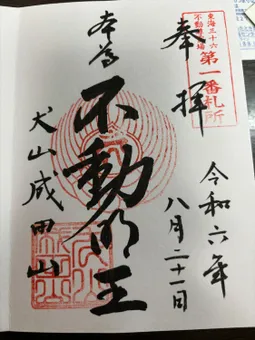 奉拝
東海三十六
不動尊霊場
第一番札所
令和六年
八月二十一日
本尊
不動明王
犬山成田山